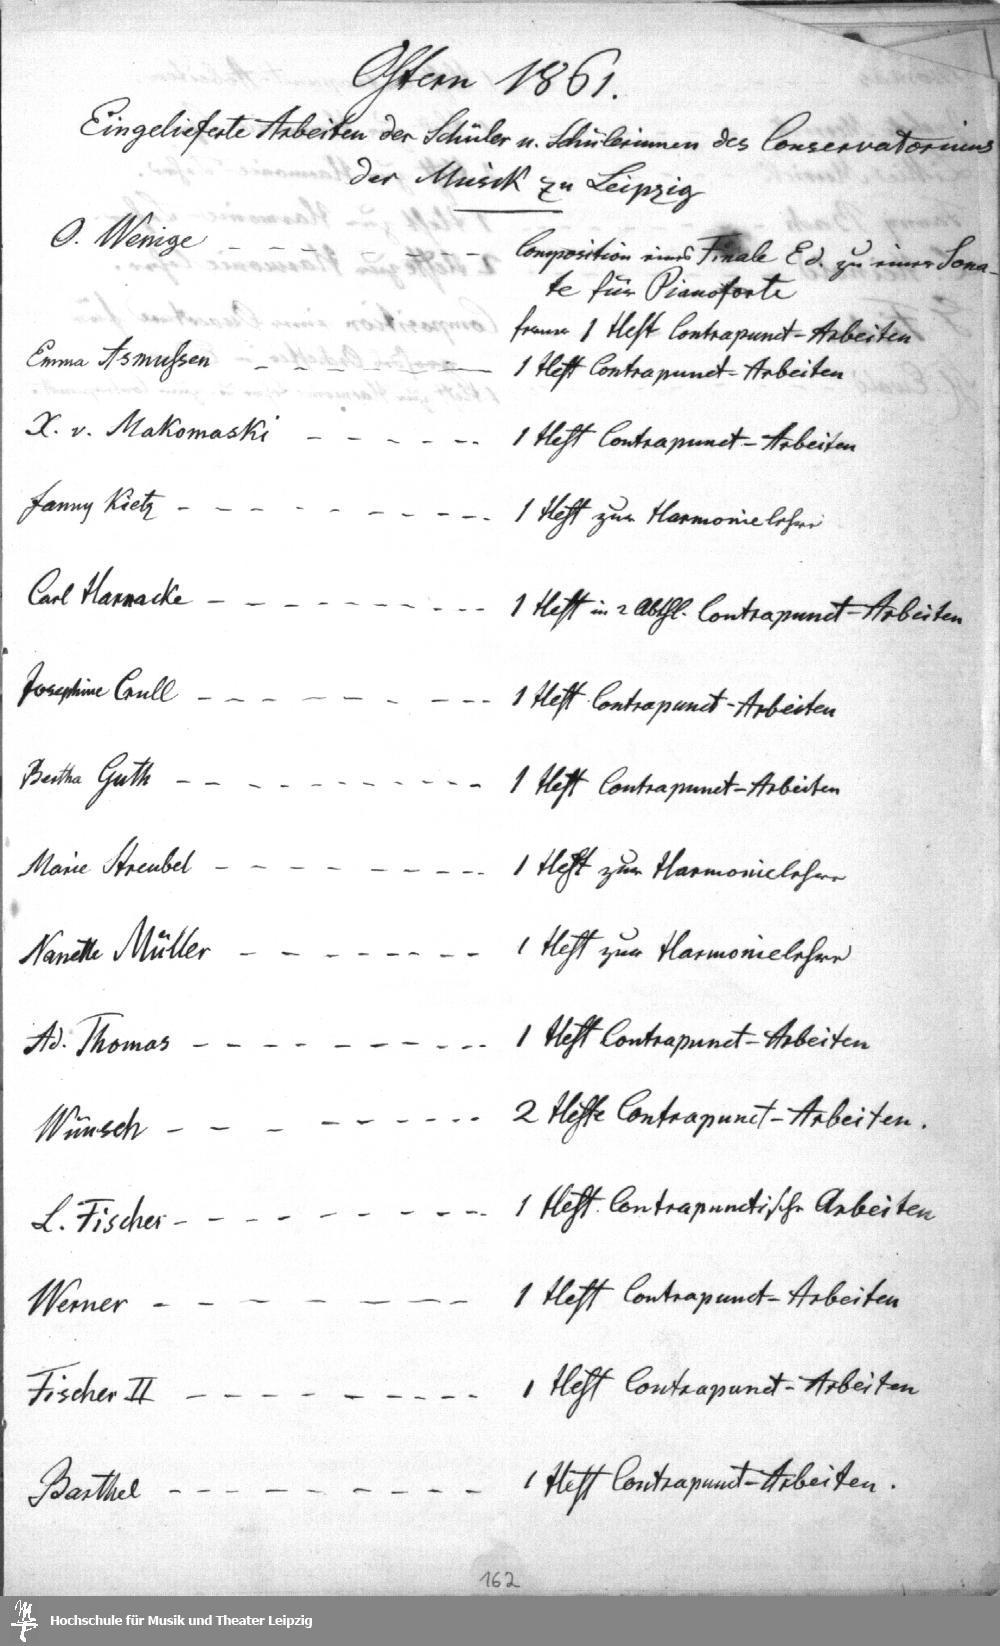 Ostern 1861.
Eingelieferte Arbeiten der Schüler u. Schülerinnen des Conservatoriums
der Musik zu Leipzig
O. Wenige - - - - - - Composition eines Finale Ed. zu einer Sona-
te für Pianoforte
ferner 1 Heft Contrapunct-Arbeiten
Emma Asmußen - - - - - - 1 Heft Contrapunct-Arbeiten
X. v. Makomaski - - - - - - 1 Heft Contrapunct-Arbeiten
Fanny Kietz - - - - - - - - - 1 Heft zur Harmonielehre
Carl Harnacke - - - - - - - - - 1 Heft in 2 Abthl. Contrapunct-Arbeiten
Josephine Crull - - - - - - - - - 1 Heft Contrapunct-Arbeiten
Bertha Guth - - - - - - - - - - 1 Heft Contrapunct-Arbeiten
Marie Streubel - - - - - - - - - 1 Heft zur Harmonielehre
Nanette Müller - - - - - - - - 1 Heft zur Harmonielehre
Ad. Thomas - - - - - - - - - 1 Heft Contrapunct-Arbeiten
Wünsch - - - - - - - - - 2 Hefte Contrapunct-Arbeiten.
L. Fischer - - - - - - - - - 1 Heft Contrapunctische Arbeiten
Werner - - - - - - - - 1 Heft Contrapunct-Arbeiten
Fischer II - - - - - - - - 1 Heft Contrapunct-Arbeiten
Barthel - - - - - - - - - 1 Heft Contrapunct-Arbeiten.
162
Hochschule für Musik und Theater Leipzig